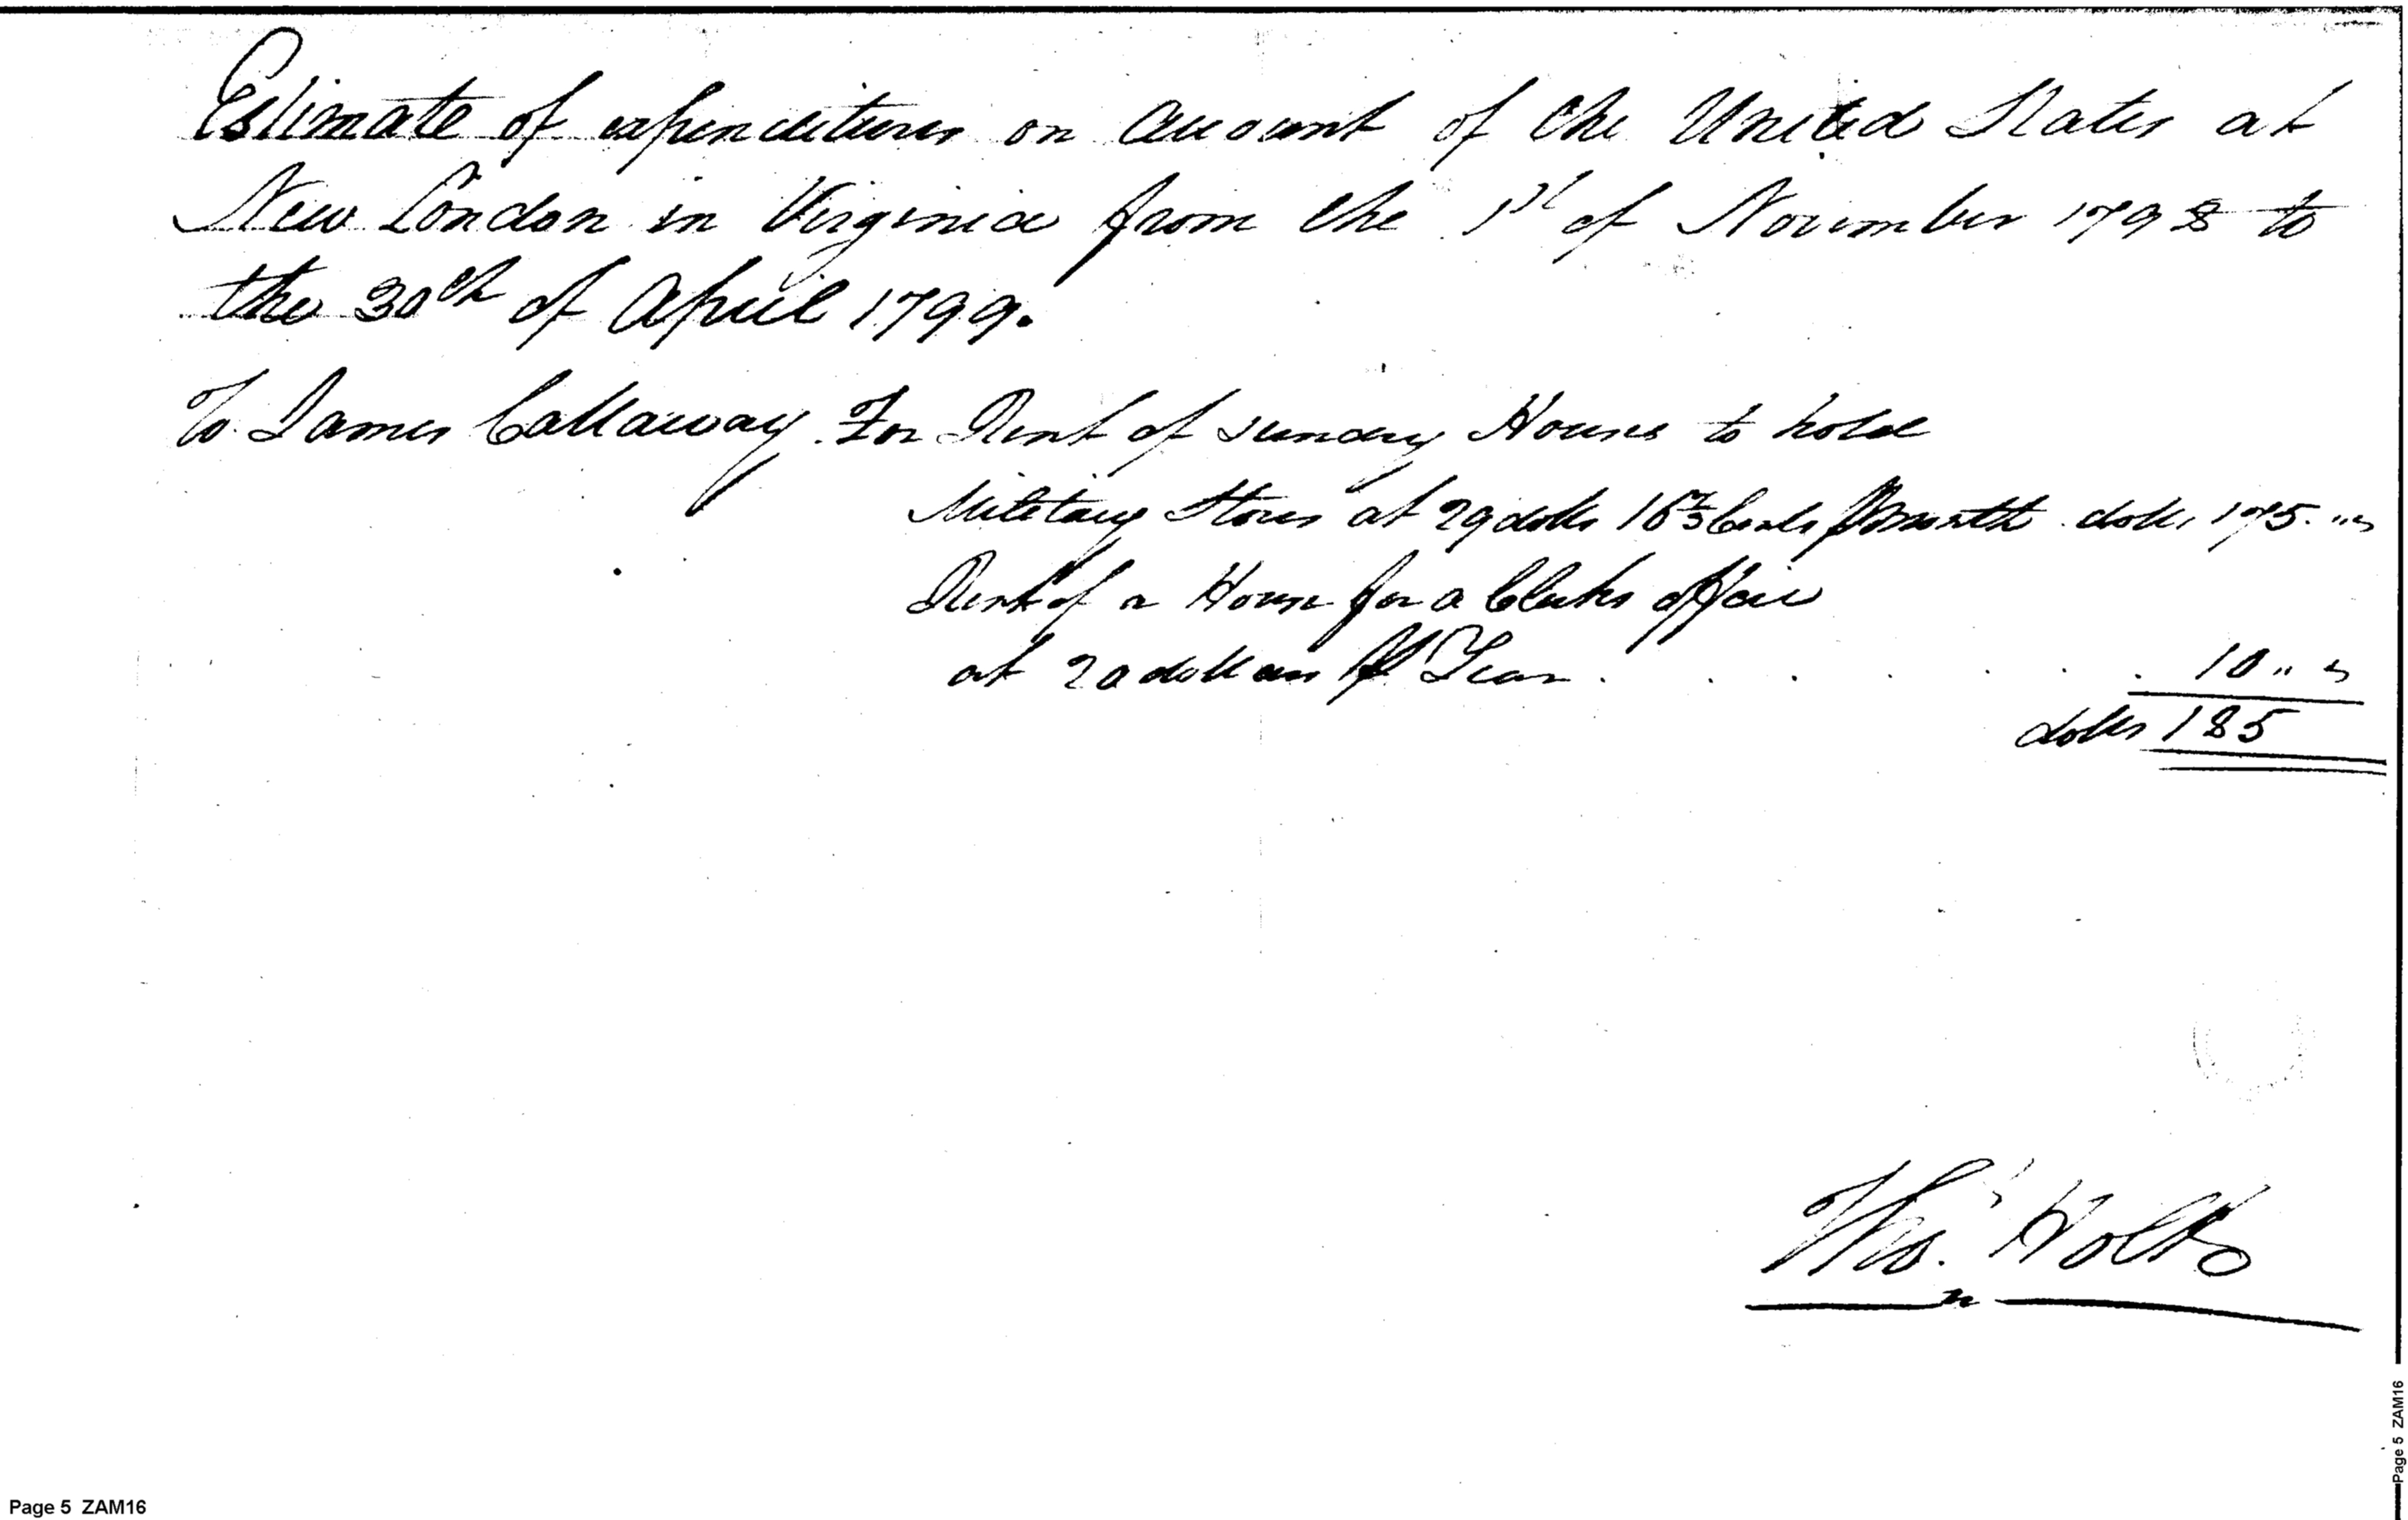 Estimate of expenditures on account of the United States at
New London in Virginia from the 1st of November 1798 to
the 30th of April 1799.
To James Callaway For Rent of sundry Houses to hold
Military Stores at 29 dolls 16 2/3 Cents ⅌ month dolls 175. "
Rent of a House for a Clerks office
at 20 dollars ⅌ Year . . . . . . 10 "
dolls 185
Thos. Holt
Page 5 ZAM16
Page 5 ZAM16